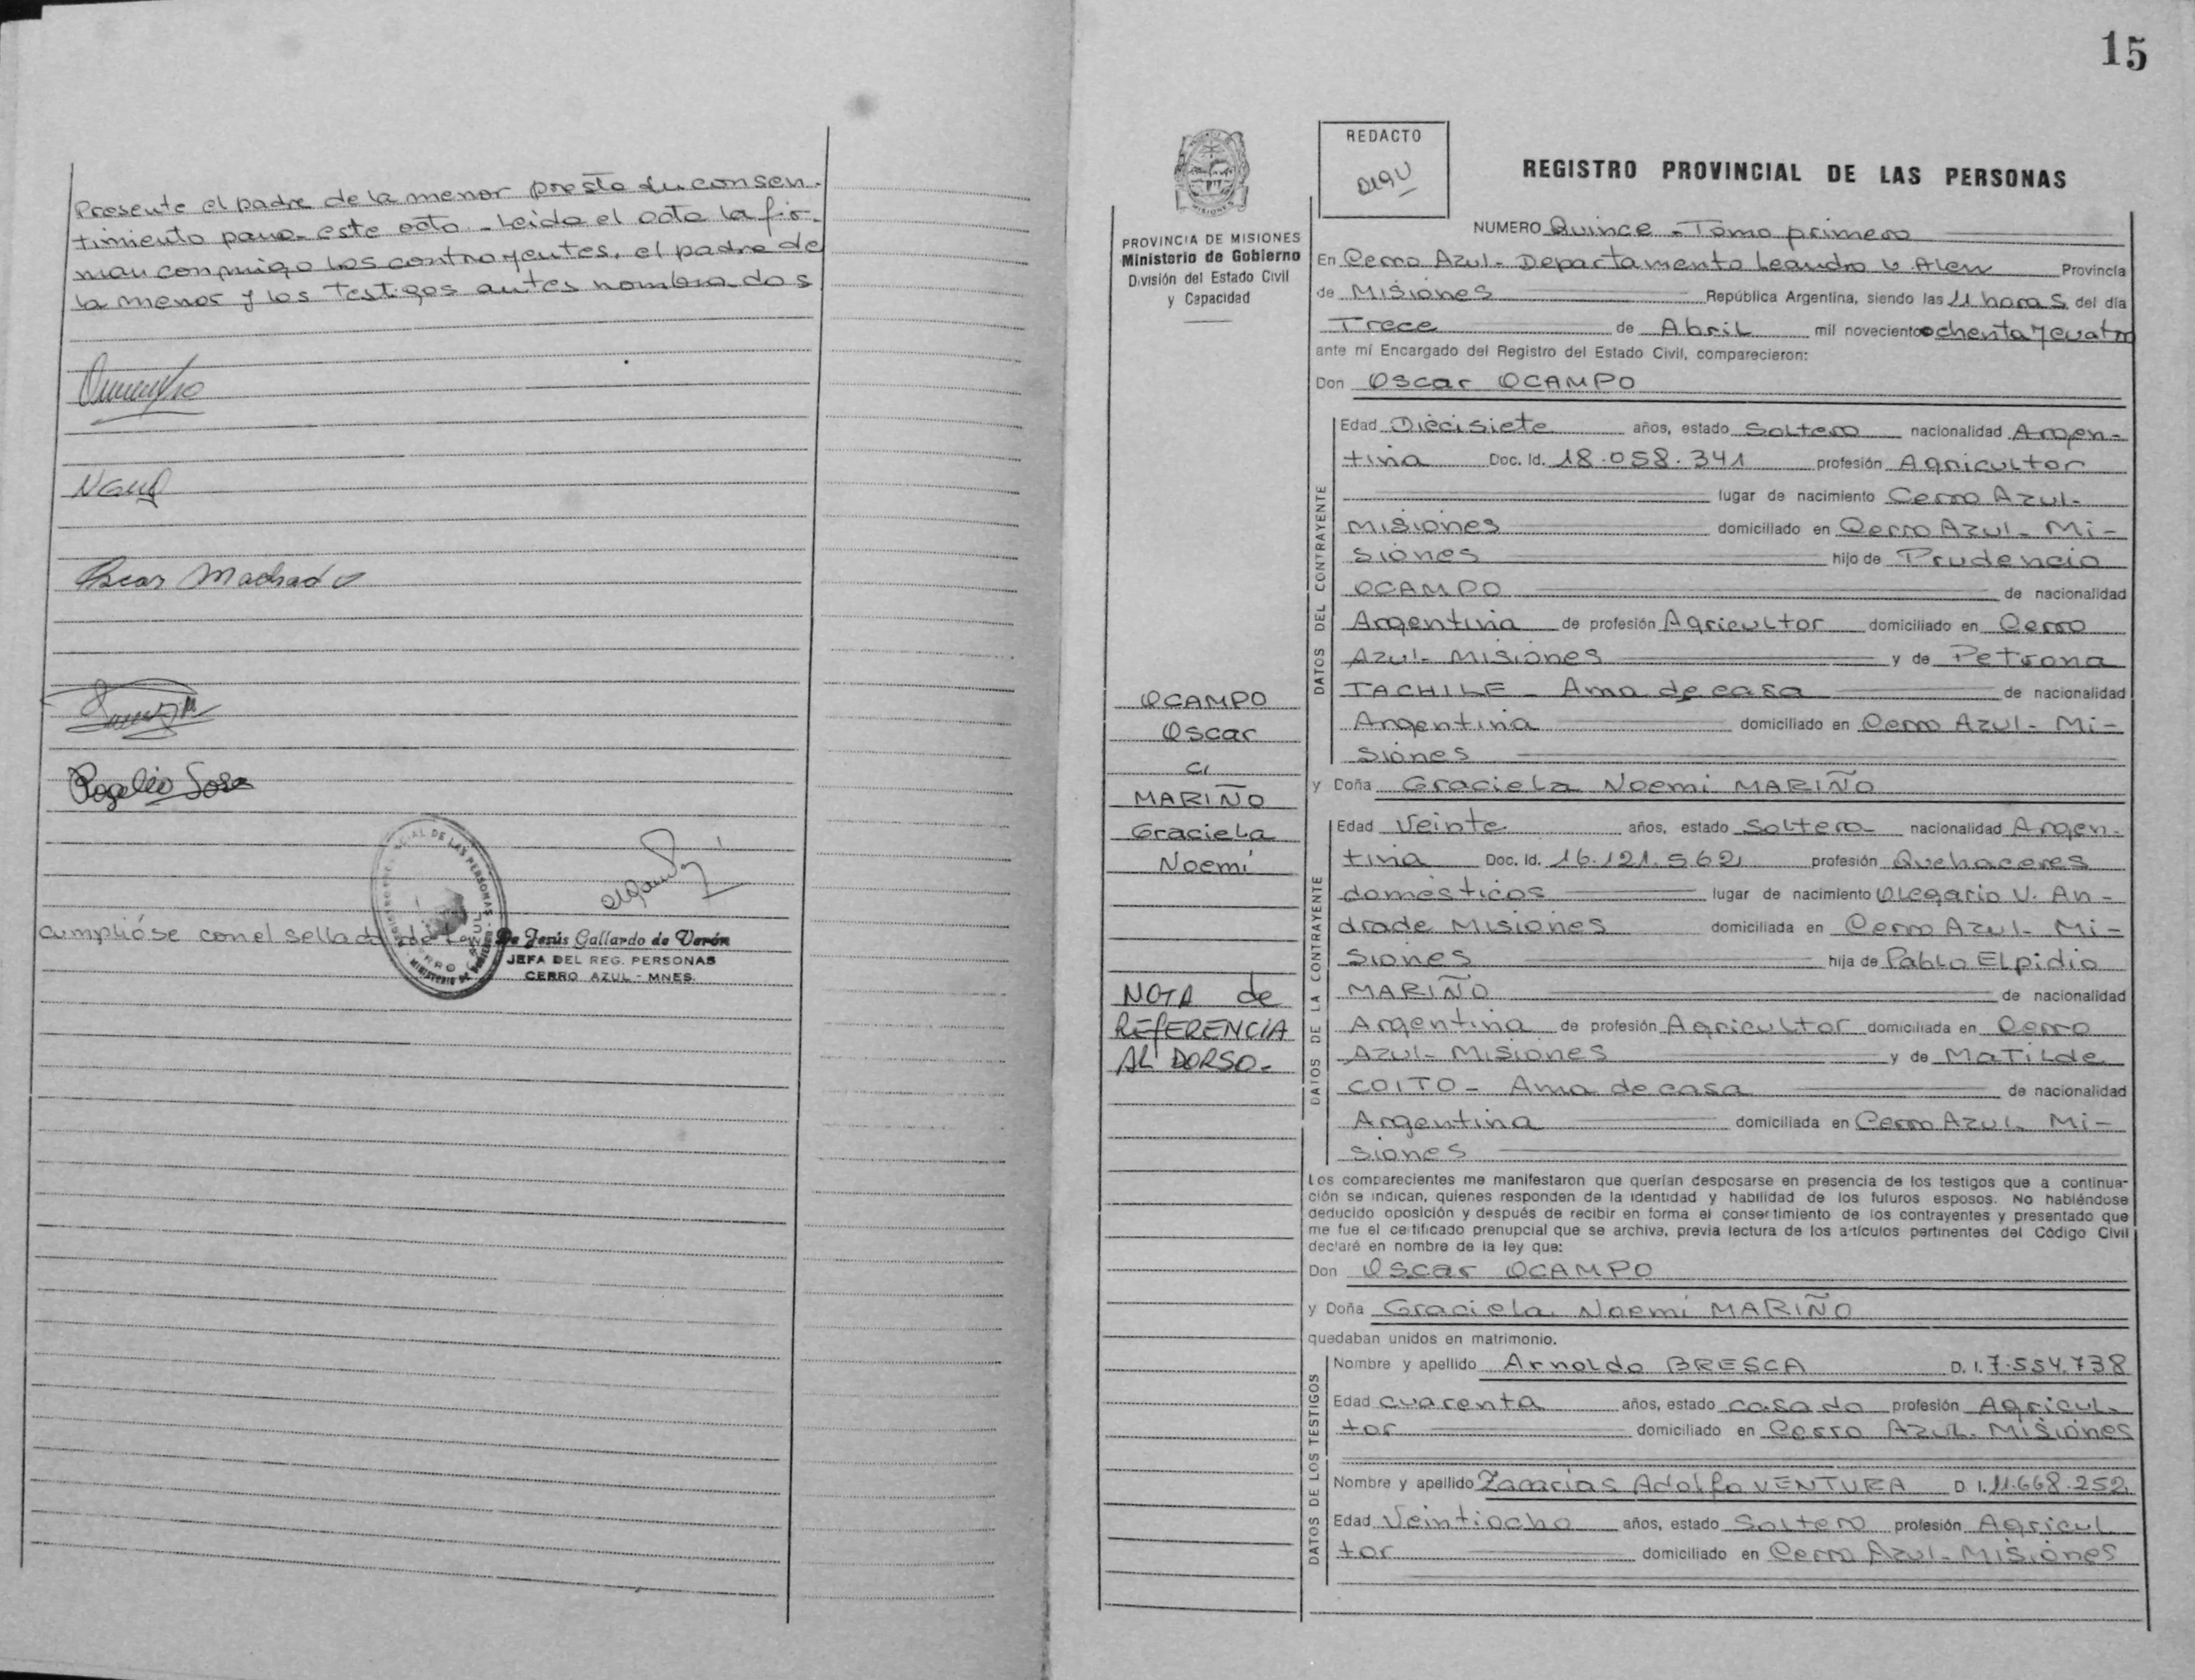 Presente el padre de la menor presta su consen-
timiento para este acto - Leida el acta la fir-
man conmigo los contrayentes, el padre de
la menor y los testigos antes nombrados
Oscar Machado
Rogelio Sosa
Cumplióse con el sellado de Ley
De Jesús Gallardo de Verón
JEFA DEL REG. PERSONAS
CERRO AZUL - MNES.
15
REDACTO
REGISTRO PROVINCIAL DE LAS PERSONAS
PROVINCIA DE MISIONES
Ministerio de Gobierno
División del Estado Civil
y Capacidad
OCAMPO
Oscar
c/
MARIÑO
Graciela
Noemí
NOTA de
REFERENCIA
AL DORSO-
NUMERO Quince - Tomo primero
En Cerro Azul- Departamento Leandro N Alem Provincia
de Misiones República Argentina, siendo las 11 horas del día
Trece de Abril mil novecientos ochenta y cuatro
ante mí Encargado del Registro del Estado Civil, comparecieron:
Don Oscar OCAMPO
DATOS DEL CONTRAYENTE
Edad Diecisiete años, estado Soltero nacionalidad Argen-
tina Doc. Id. 18.058.341 profesión Agricultor
lugar de nacimiento Cerro Azul-
Misiones domiciliado en Cerro Azul- Mi-
siones hijo de Prudencio
OCAMPO de nacionalidad
Argentina de profesión Agricultor domiciliado en Cerro
Azul- Misiones y de Petrona
TACHILE - Ama de casa de nacionalidad
Argentina domiciliado en Cerro Azul- Mi-
siones
y Doña Graciela Noemi MARIÑO
DATOS DE LA CONTRAYENTE
Edad Veinte años, estado Soltera nacionalidad Argen-
tina Doc. Id. 16.121.562 profesión Quehaceres
domésticos lugar de nacimiento Olegario V. An-
drade Misiones domiciliada en Cerro Azul- Mi-
siones hija de Pablo Elpidio
MARIÑO de nacionalidad
Argentina de profesión Agricultor domiciliada en Cerro
Azul- Misiones y de Matilde
COITO - Ama de casa de nacionalidad
Argentina domiciliada en Cerro Azul- Mi-
siones
Los comparecientes me manifestaron que querían desposarse en presencia de los testigos que a continua-
ción se indican, quienes responden de la identidad y habilidad de los futuros esposos. No habiéndose
deducido oposición y después de recibir en forma el consertimiento de los contrayentes y presentado que
me fue el certificado prenupcial que se archiva, previa lectura de los artículos pertinentes del Código Civil
declaré en nombre de la ley que:
Don Oscar OCAMPO
y Doña Graciela Noemí MARIÑO
quedaban unidos en matrimonio.
DATOS DE LOS TESTIGOS
Nombre y apellido Arnoldo BRESCA D. I. 7.554.738
Edad cuarenta años, estado casado profesión Agricul-
tor domiciliado en Cerro Azul- Misiones
Nombre y apellido Zacarías Adolfo VENTURA D. I. 11.668.252
Edad Veintiocho años, estado Soltero profesión Agricul
tor domiciliado en Cerro Azul- Misiones